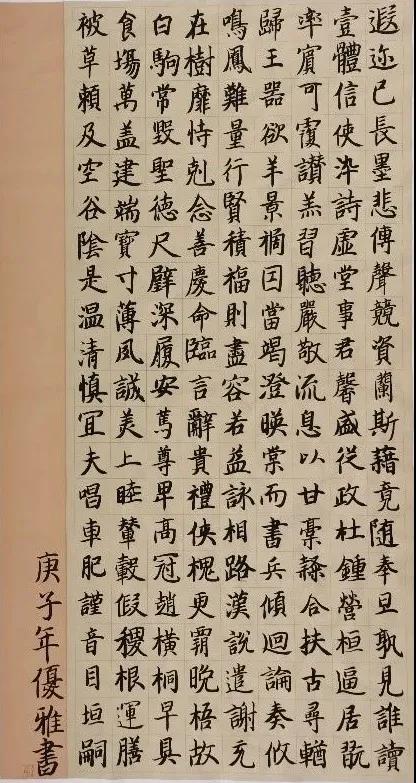 遐迩已長墨悲傳聲競資蘭斯藉竟随奉旦孰見誰讀
壹體信使染詩虛堂事君馨盛從政杜鍾營桓逼居翫
率賓可覆讃羔習聽嚴敬流息以甘稾隸合扶古尋輶
歸王器欲羊景禍囙當竭澄暎棠而書兵傾迴論奏攸
鳴鳳難量行賢積福則盡容若益詠相路漢說遣謝充
在樹靡恃剋念善慶命臨言辭貴禮俠槐更霸晚梧故
白駒常毀聖德尺璧深履安篤尊卑髙冠趙橫桐早具
食塲萬盖建端寶寸薄夙誠美上睦輦轂假稷根運膳
被草賴及空谷陰是温清慎宜夫唱車肥謹音目垣嗣
庚子年優雅書